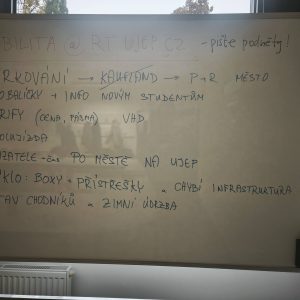 BILITA@RT.UJEP.CZ - pište podněty!
RKOVÁNÍ → KAUFLAND → P+R MĚSTO
OBALÍČKY + INFO NOVÝM STUDENTŮM
RIFY (CENA, PÁSMA) VHD
OLOJÍZDA
ATELE PO MĚSTĚ NA UJEP
KLO: BOXY + PŘÍSTŘEŠKY CHYBÍ INFRASTRUKTURA
TAV CHODNÍKŮ ZIMNÍ ÚDRŽBA